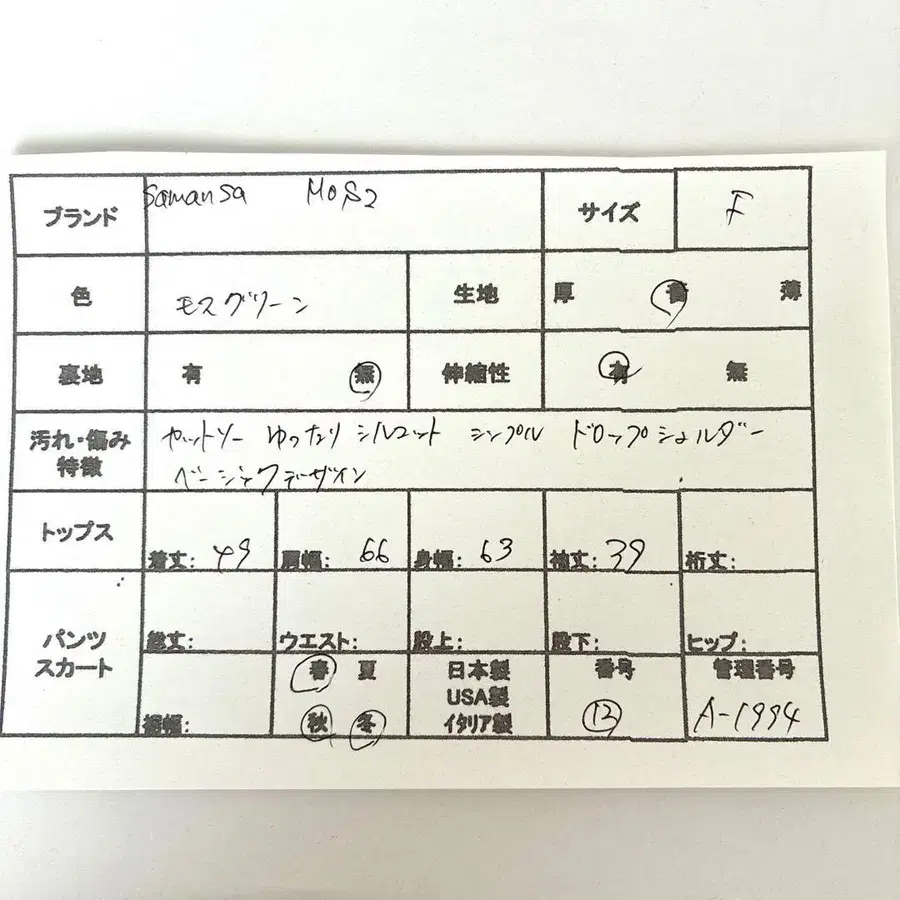 ブランド Samansa MOS2 サイズ F
色 モスグリーン 生地 厚 普 薄
裏地 有 無 伸縮性 有 無
汚れ・傷み カットソー ゆったり シルエット シンプル ドロップショルダー
特徴 ベーシックデザイン
トップス 着丈: 49 肩幅: 66 身幅: 63 袖丈: 39 裄丈:
パンツ スカート 総丈: ウエスト: 股上: 股下: ヒップ:
裾幅: 春 夏 秋 冬 日本製 USA製 イタリア製 番号 12 管理番号 A-1994